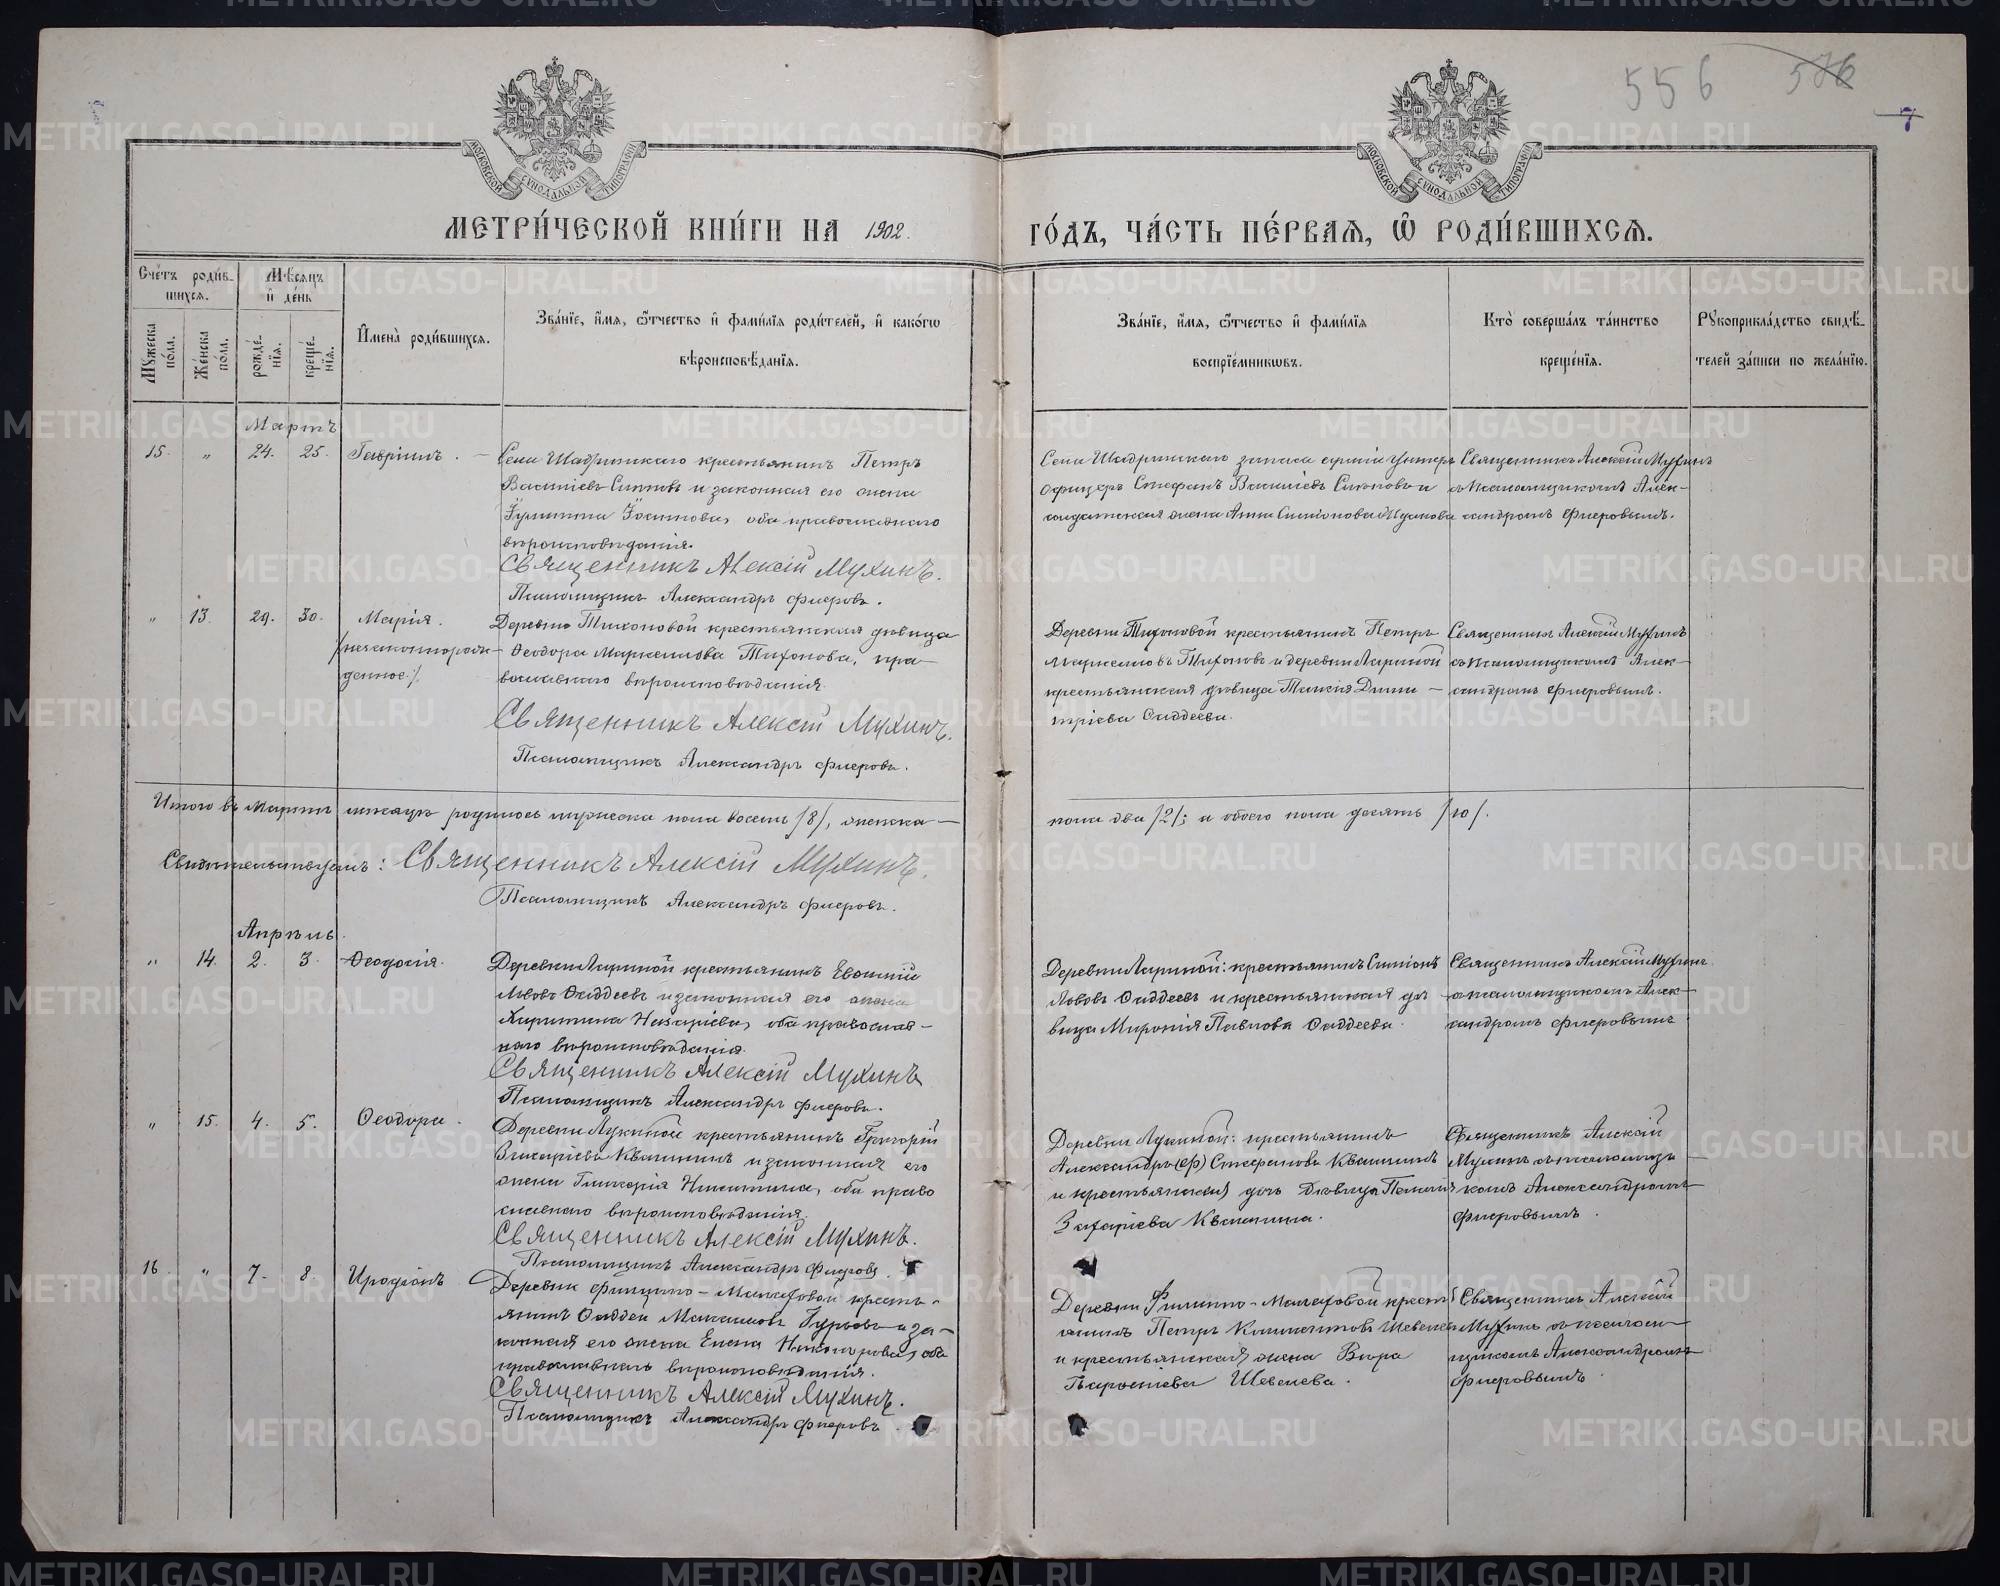 556 576
7
МОСКОВСКОЙ СУНОДАЛЬНОЙ ТИПОГРАФІИ
МОСКОВСКОЙ СУНОДАЛЬНОЙ ТИПОГРАФІИ
МЕТРИ́ЧЕСКОЙ КНИ́ГИ НА 1902.
ГО́ДЪ, ЧА́СТЬ ПЕ́РВАЯ, Ѡ҆ РОДИ́ВШИХСЯ.
Счетъ роди́вшихся.
Мѣ́сяцъ и де́нь
Му́жеска по́ла.
Же́нска по́ла.
рожде́нїя.
креще́нїя.
И҆мена̀ роди́вшихся.
Зва́нїе, и҆́мя, ѻ҆́тчество и҆ фами́лїя роди́телей, и҆ како́гѡ
вѣроисповѣ́данїя.
Зва́нїе, и҆́мя, ѻ҆́тчество и҆ фами́лїя
воспрїе́мникѡвъ.
Кто̀ соверша́лъ та́инство
креще́нїя.
Рукоприкла́дство свидѣ́-
телей за́писи по жела́нїю.
Мартъ
15. " 24. 25. Гавріилъ.
Села Шадринскаго крестьянинъ Петръ
Василіевъ и законная его жена
Іустина, оба православнаго
вѣроисповѣданія.
Священникъ Алексій Мухинъ.
Псаломщикъ Александръ Флеровъ.
Села Шадринскаго запаса арміи Унтеръ
Офицеръ Стефанъ Василіевъ и
солдатская жена Анна Симеонова
Священникъ Алексій Мухинъ
съ псаломщикомъ Алек-
сандромъ Флеровымъ.
" 13. 29. 30. Марія.
/незаконнорож-
денное./
Деревни Тихоновой крестьянская дѣвица
Ѳеодора Маркеллова Тихонова, пра-
вославнаго вѣроисповѣданія.
Священникъ Алексій Мухинъ.
Псаломщикъ Александръ Флеровъ.
Деревни Тихоновой крестьянинъ Петръ
Маркелловъ Тихоновъ и деревни Лариной
крестьянская дѣвица Таисія Дими-
тріева Ѳаддеева.
Священникъ Алексій Мухинъ
съ псаломщикомъ Алек-
сандромъ Флеровымъ.
Итого въ Мартѣ мѣсяцѣ родилось мужеска пола восемь /8/, женска
пола два /2/; и обоего пола десять /10/.
Свидѣтельствуемъ: Священникъ Алексій Мухинъ.
Псаломщикъ Александръ Флеровъ.
Апрѣль.
" 14. 2. 3. Ѳеодосія.
Деревни Лариной крестьянинъ Евѳимій
Львовъ Ѳаддеевъ и законная его жена
Харитина Назаріева, оба православ-
наго вѣроисповѣданія.
Священникъ Алексій Мухинъ
Псаломщикъ Александръ Флеровъ.
Деревни Лариной: крестьянинъ Симеонъ
Львовъ Ѳаддеевъ и крестьянская дѣ-
вица Миронія Павлова Ѳаддеева.
Священникъ Алексій Мухинъ
съ псаломщикомъ Алек-
сандромъ Флеровымъ
" 15. 4. 5. Ѳеодора.
Деревни Лукиной крестьянинъ Григорій
Захаріевъ Квашнинъ и законная его
жена Гликерія Никитина, оба право
славнаго вѣроисповѣданія.
Священникъ Алексій Мухинъ.
Псаломщикъ Александръ Флеровъ.
Деревни Лукиной: крестьянинъ
Александръ Стефановъ Квашнинъ
и крестьянская дочь дѣвица Пелагія
Захаріева Квашнина.
Священникъ Алексій
Мухинъ съ псаломщи-
комъ Александромъ
Флеровымъ.
16. " 7. 8. Иродіонъ
Деревни Филиппо-Малаховой кресть-
янинъ Ѳаддей Максимовъ Гурьевъ и за-
конная его жена Елена Никанорова, оба
православнаго вѣроисповѣданія.
Священникъ Алексій Мухинъ.
Псаломщикъ Александръ Флеровъ.
Деревни Филиппо-Малаховой кресть
янинъ Петръ Климентовъ Шевелевъ
и крестьянская жена Вѣра
Шевелева.
Священникъ Алексій
Мухинъ съ псалом-
щикомъ Александромъ
Флеровымъ.
METRIKI.GASO-URAL.RU